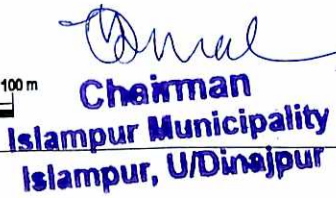 100 m
Chairman
Islampur Municipality
Islampur, U/Dinajpur